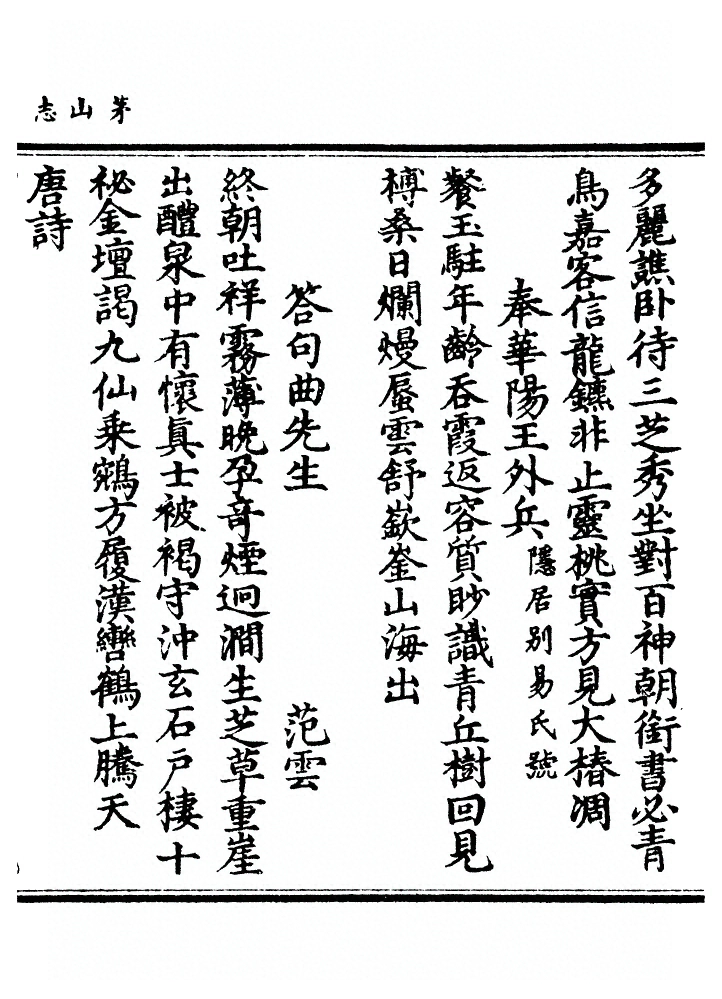 茅山志
多麗譙卧待三芝秀坐對百神朝銜書必青
鳥嘉客信龍鑣非止靈桃實方見大椿凋
奉華陽王外兵隱居别易氏號
餐玉駐年齡吞霞返容質眇識青丘樹回見
榑桑日爛熳蜃雲舒嶔崟山海出
答句曲先生 范雲
終朝吐祥霧薄晚孕竒煙迥澗生芝草重崖
出醴泉中有懷眞士被褐守沖玄石户棲十
祕金壇謁九仙乘鵷方履漢轡鶴上騰天
唐詩